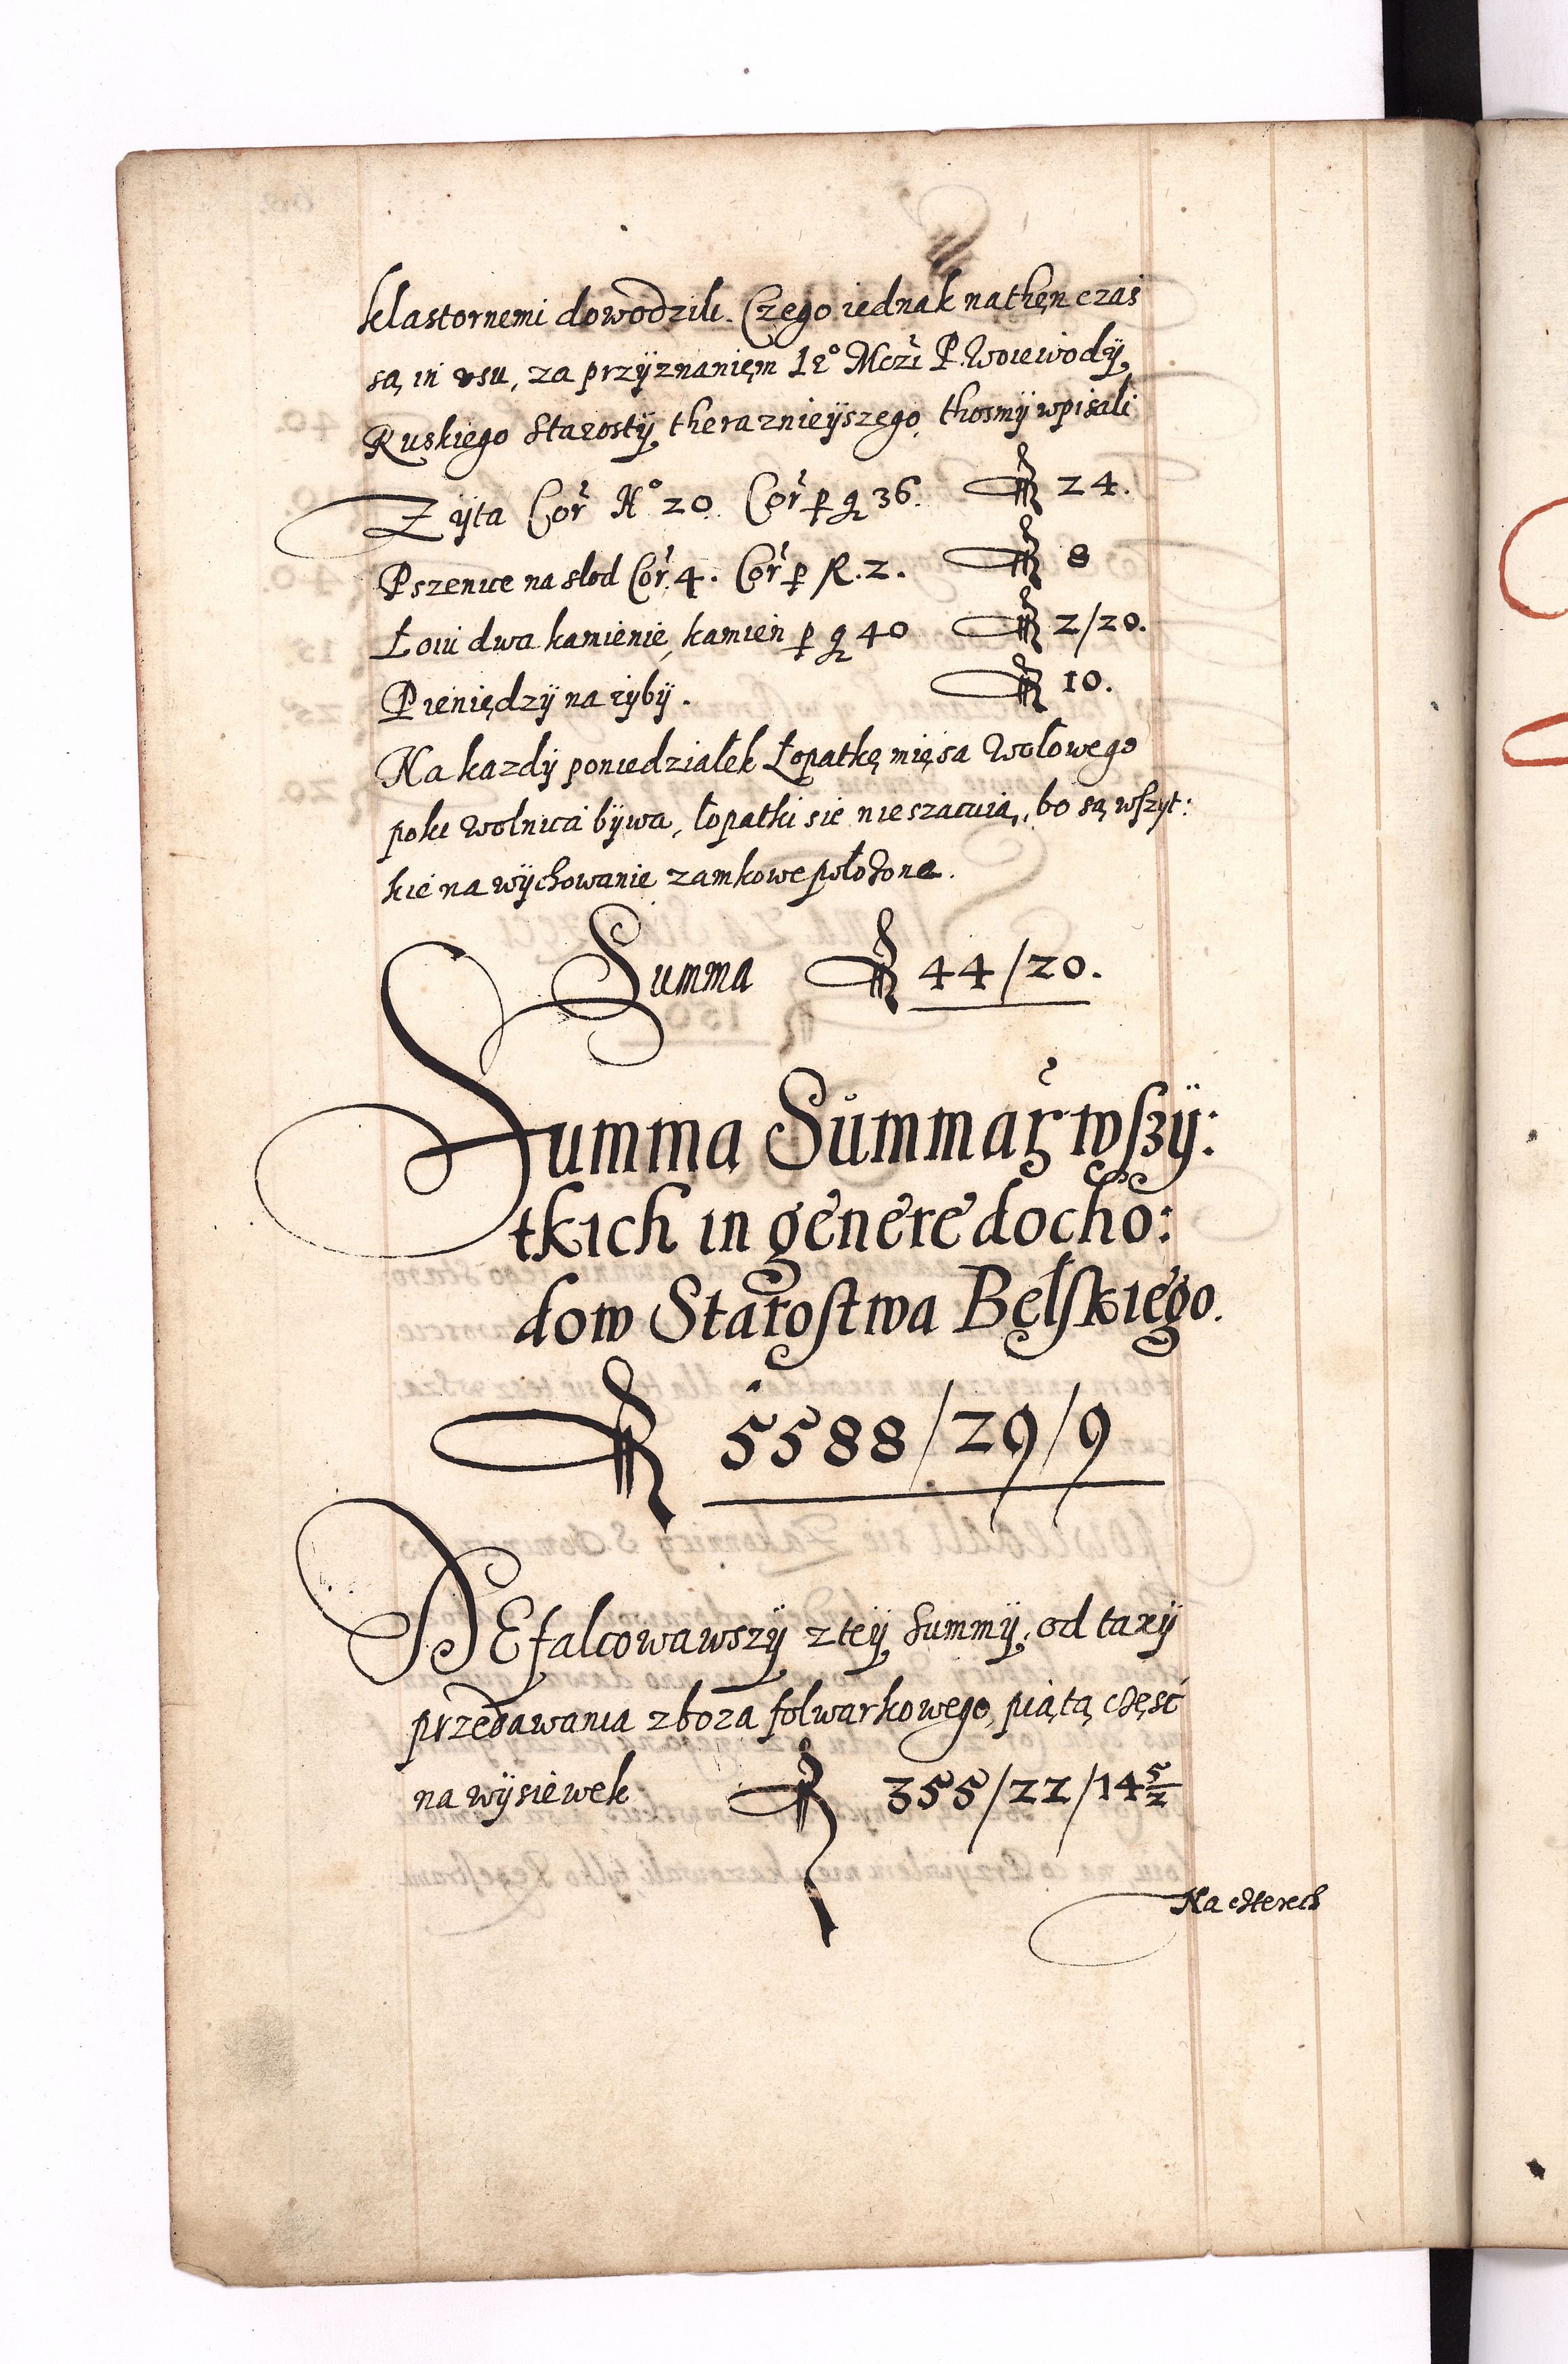 klastornemi dowodzili. Czego iednak nathenczas
są in vsu, za przÿznanięm Ie° Mczi P. Woiewodÿ
Ruskiego Starostÿ theraznieÿszego, thosmÿ wpisali
Zÿta Cor N° 20. Cor p q 36. fl 24.
Pszenice na słod Cor. 4. Cor p fl. 2. fl 8
Łoiu dwa kamienie, kamien p q 40 fl 2/20.
Pieniędzÿ na rÿbÿ. fl 10.
Na kazdÿ poniedziałek Łopatkę mięsa Wołowego
poki Wolnica bÿwa, łopatki sie nie szacuią, bo są wszyt:
kie na wÿchowanie zamkowe położone.
Summa fl 44/20.
Summa Summar wszÿ:
tkich in genere docho:
dow Starostwa Bęlskiego.
fl 5588/29/9
DEfalcowawszÿ z teÿ Summÿ, od taxÿ
przedawania zboza folwarkowego, piątą część
na wÿsiewek fl 355/22/14 5/2
Na czterech